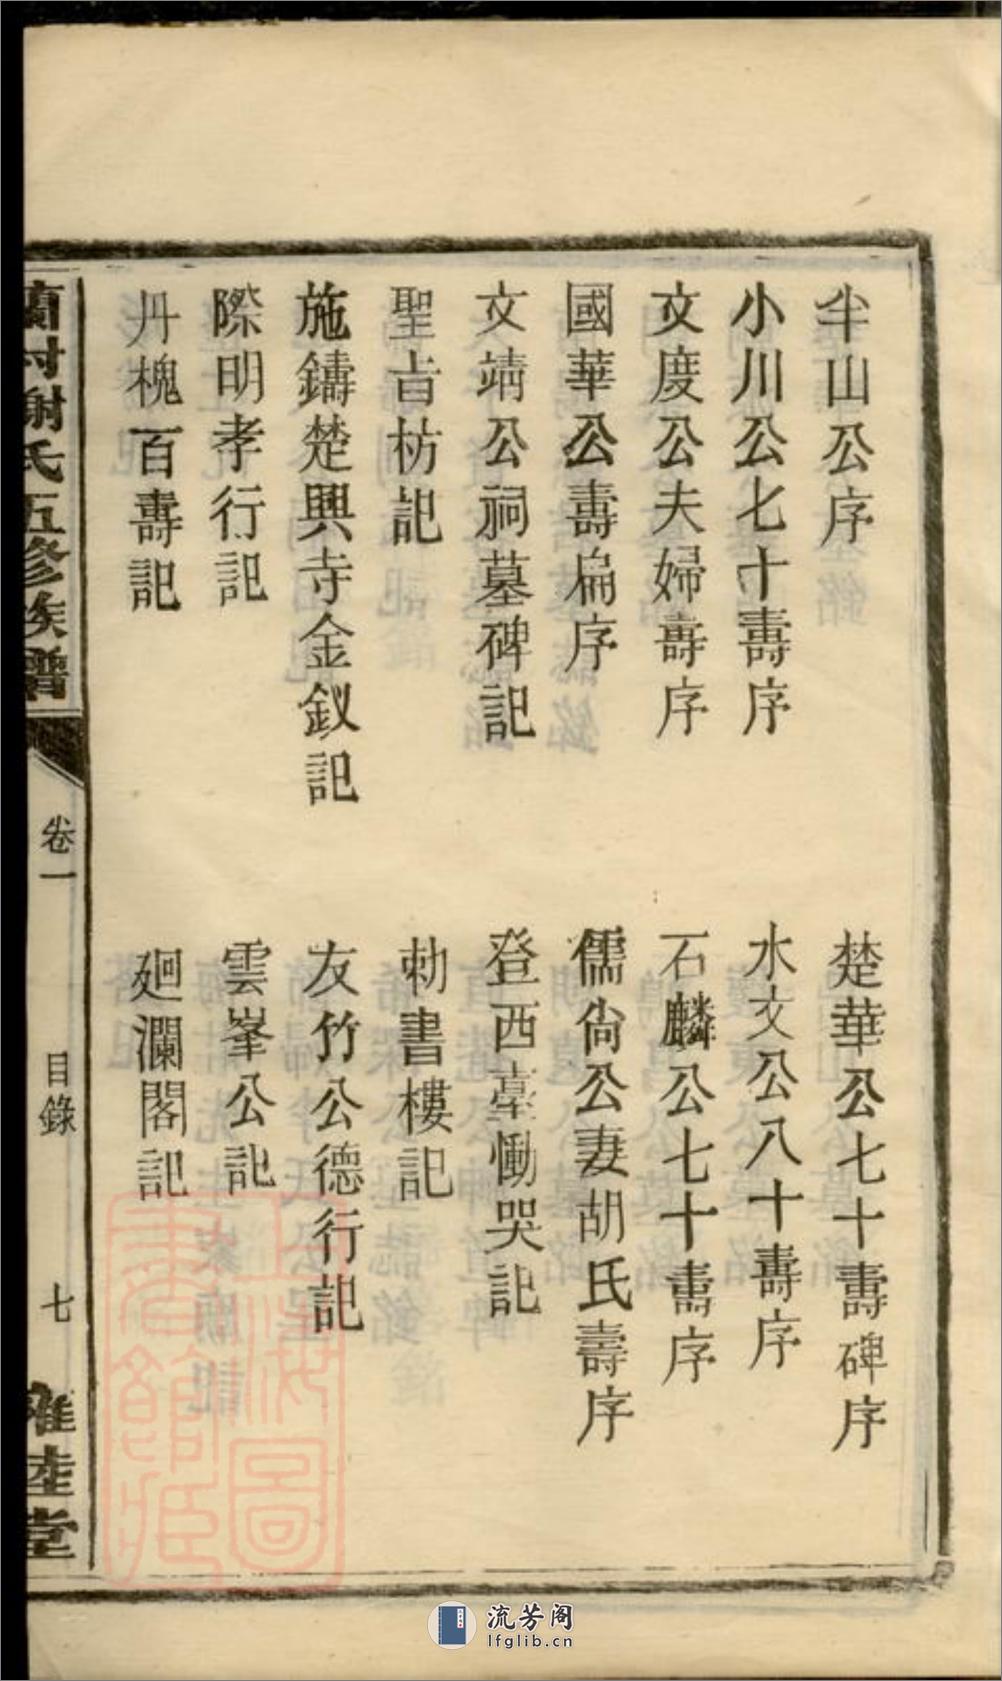 半山公序
楚華公七十壽碑序
小川公七十壽序
水文公八十壽序
文度公夫婦壽序
石麟公七十壽序
國華公壽扁序
儒尙公妻胡氏壽序
文靖公祠墓碑記
登西臺慟哭記
聖旨枋記
勅書樓記
施鑄楚興寺金釵記
友竹公德行記
際明孝行記
雲峯公記
丹槐百壽記
廻瀾閣記
謝氏五修族譜
卷一
目錄
七
雍睦堂
上海圖書館藏
流芳阁
lfglib.cn